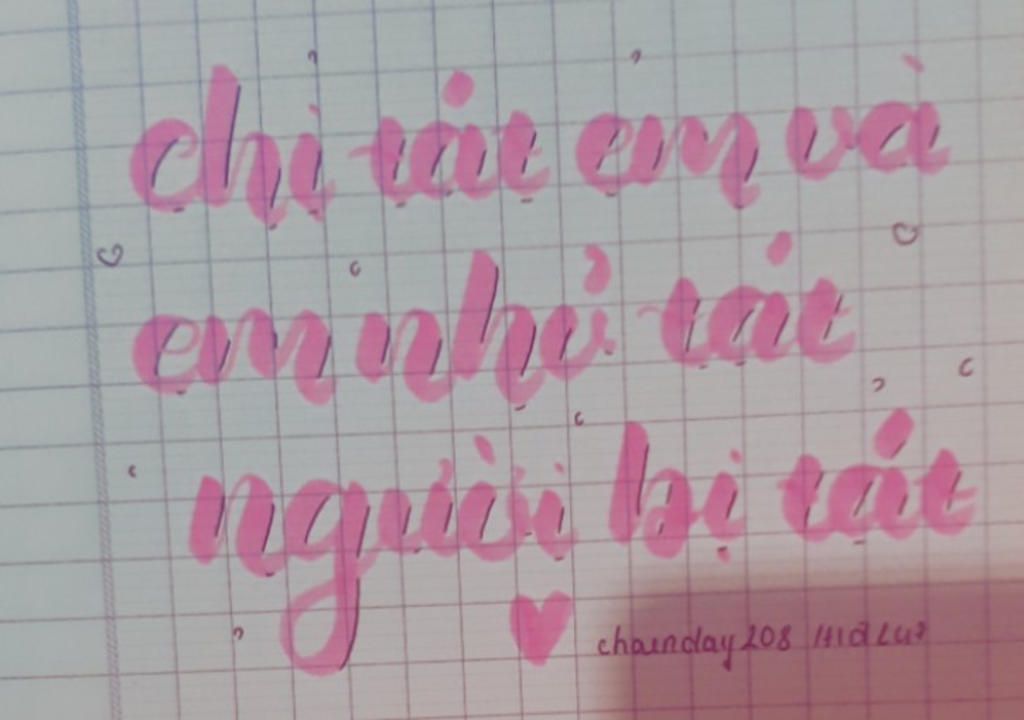 chị tát em và
em nhỏ tát
người bị tát
chainday208